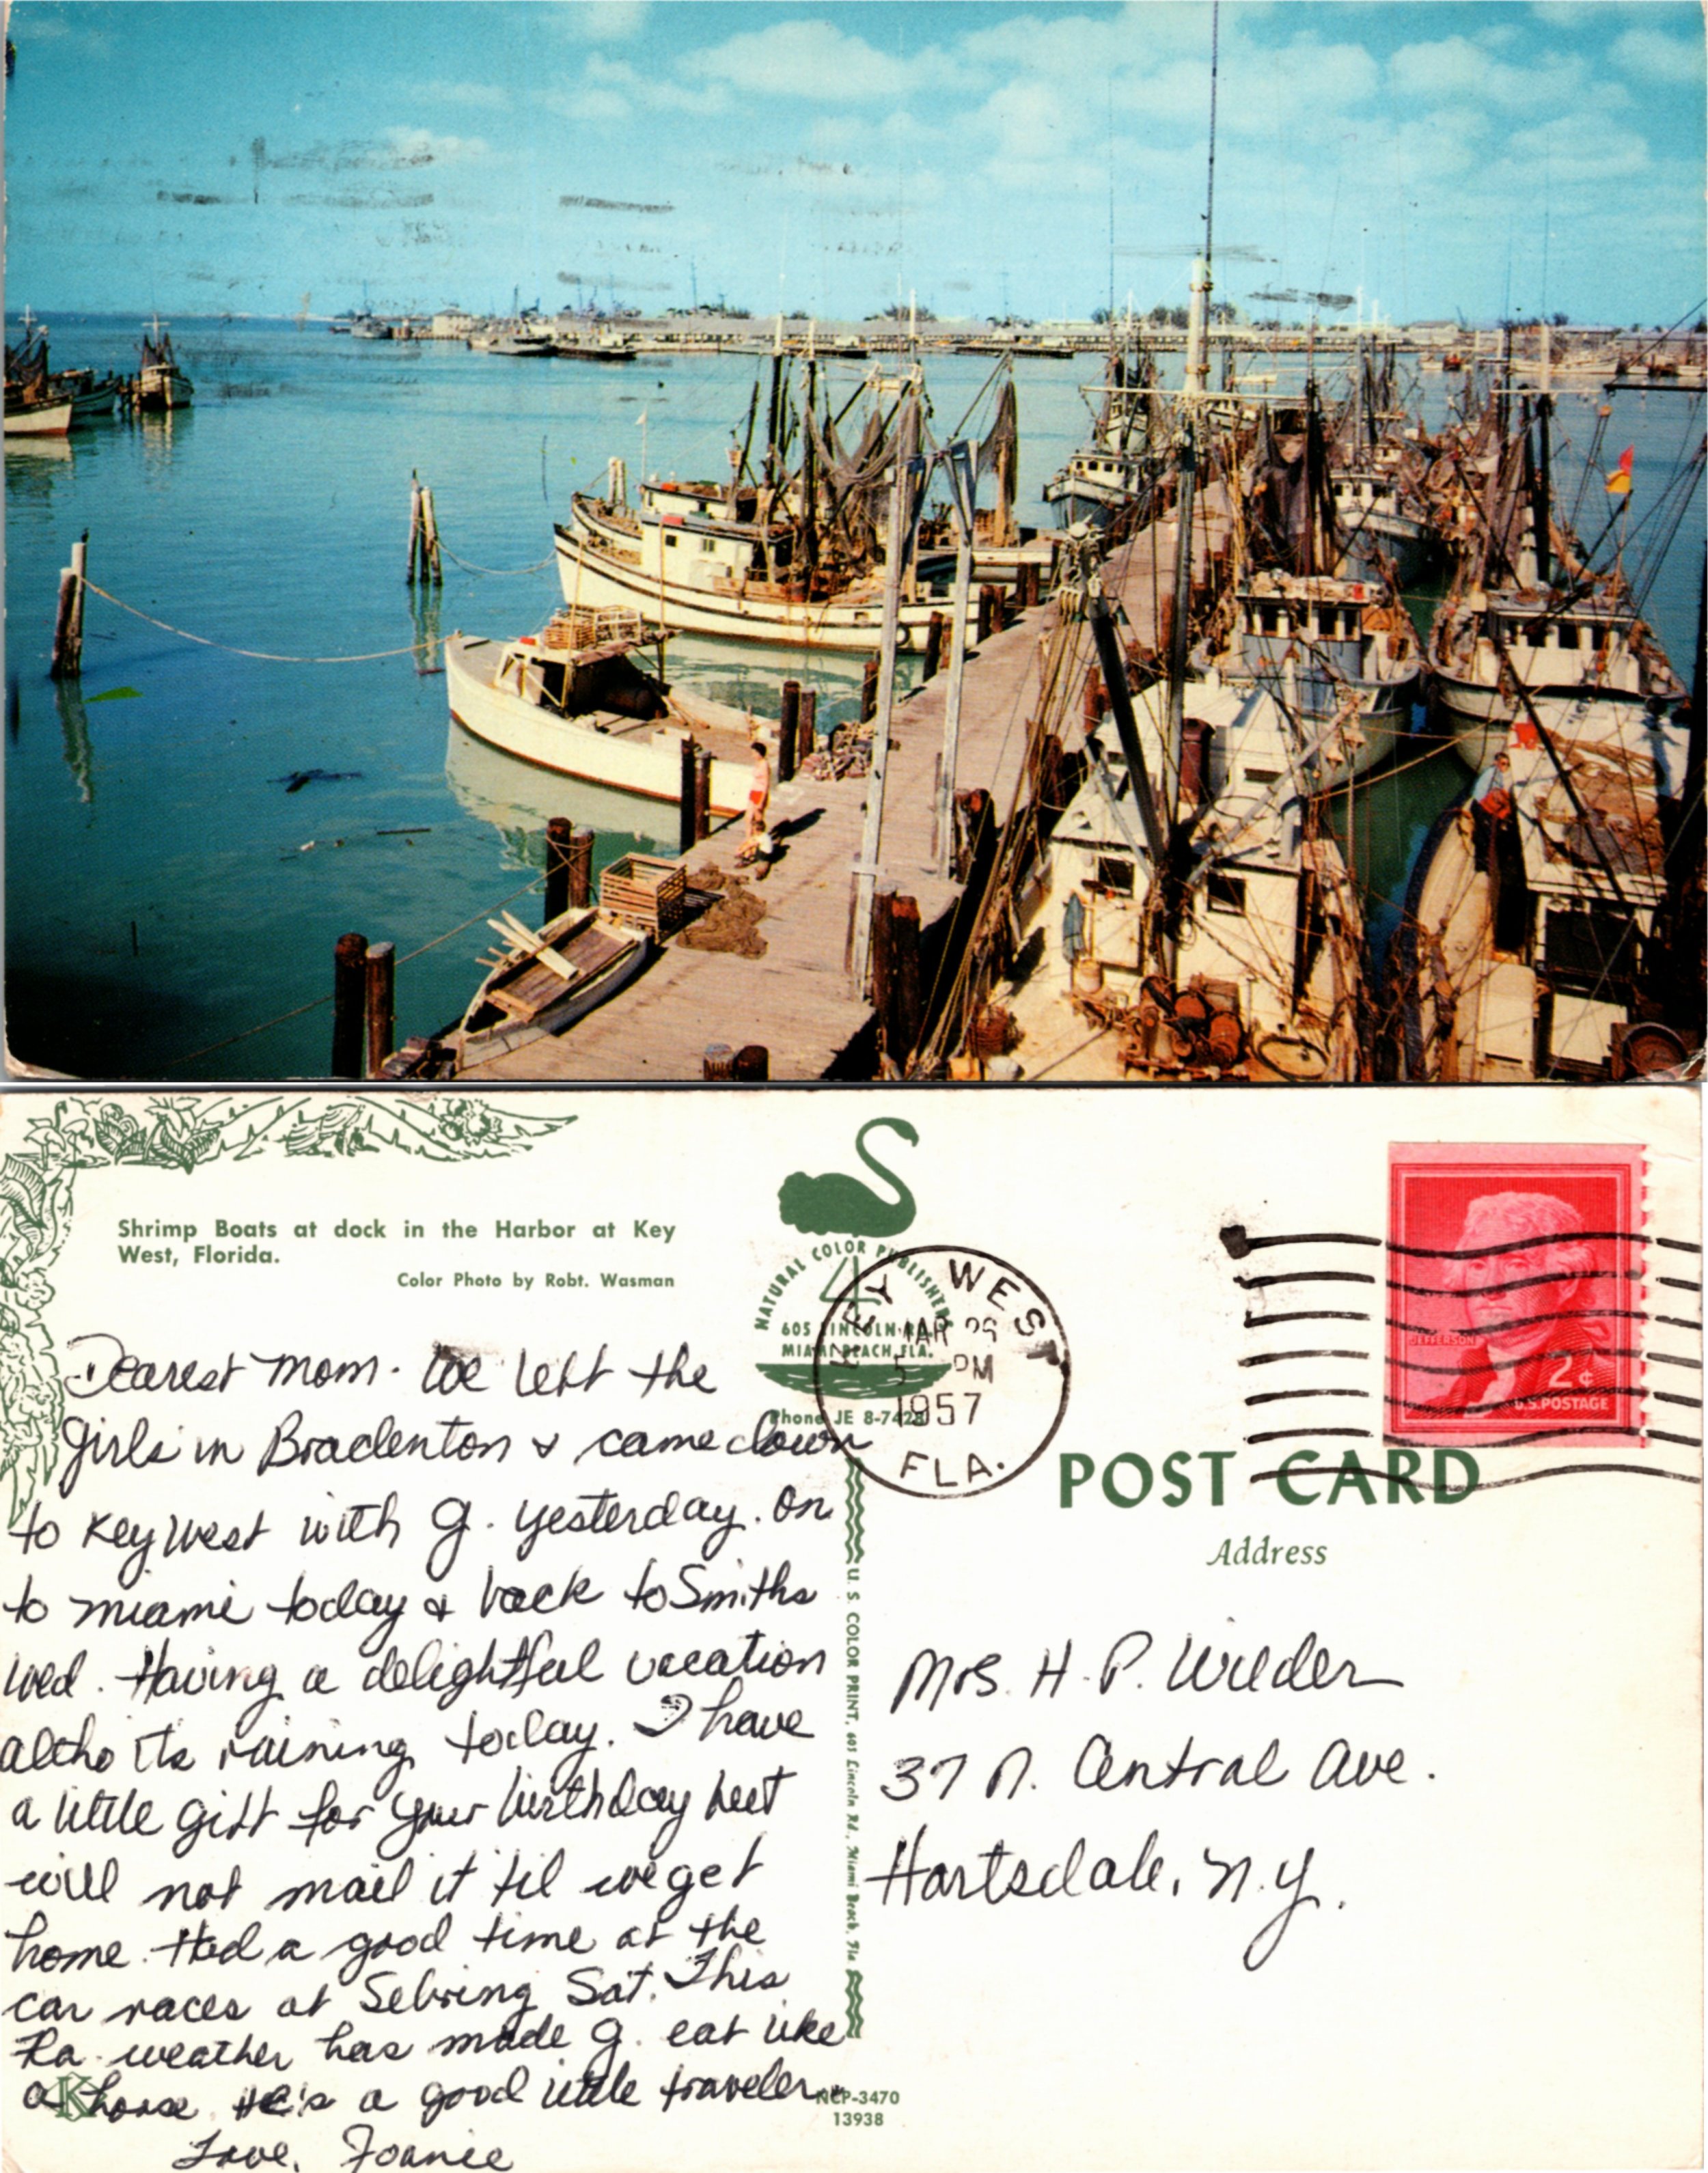 Shrimp Boats at dock in the Harbor at Key
West, Florida.
Color Photo by Robt. Wasman
NATURAL COLOR PUBLISHER
605 LINCOLN RD.
MIAMI BEACH, FLA.
Phone JE 8-7428
KEY WEST
MAR
5 PM
1957
FLA.
JEFFERSON
2¢
U.S. POSTAGE
POST CARD
Address
Dearest Mom. We left the
girls in Bradenton & came down
to Key West with G. yesterday. On
to Miami today & back to Smiths
Wed. Having a delightful vacation
altho its raining today. I have
a little gift for your birthday but
will not mail it 'til we get
home. Had a good time at the
car races at Sebring Sat. This
Fla. weather has made G. eat like
a horse. He's a good little traveler.
Love, Joanie
U. S. COLOR PRINT, 605 Lincoln Rd., Miami Beach, Fla
Mrs. H. P. Wilder
37 N. Central Ave.
Hartsdale, N.Y.
K
NCP-3470
13938